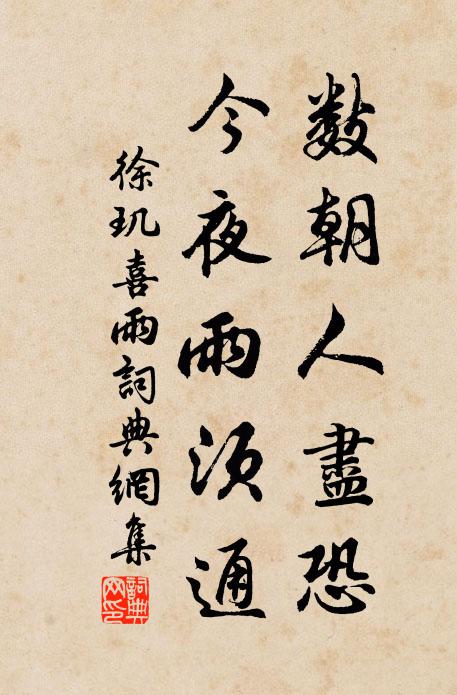 数朝人盡恐
今夜雨須通
徐玑喜雨詞典網集
詞典